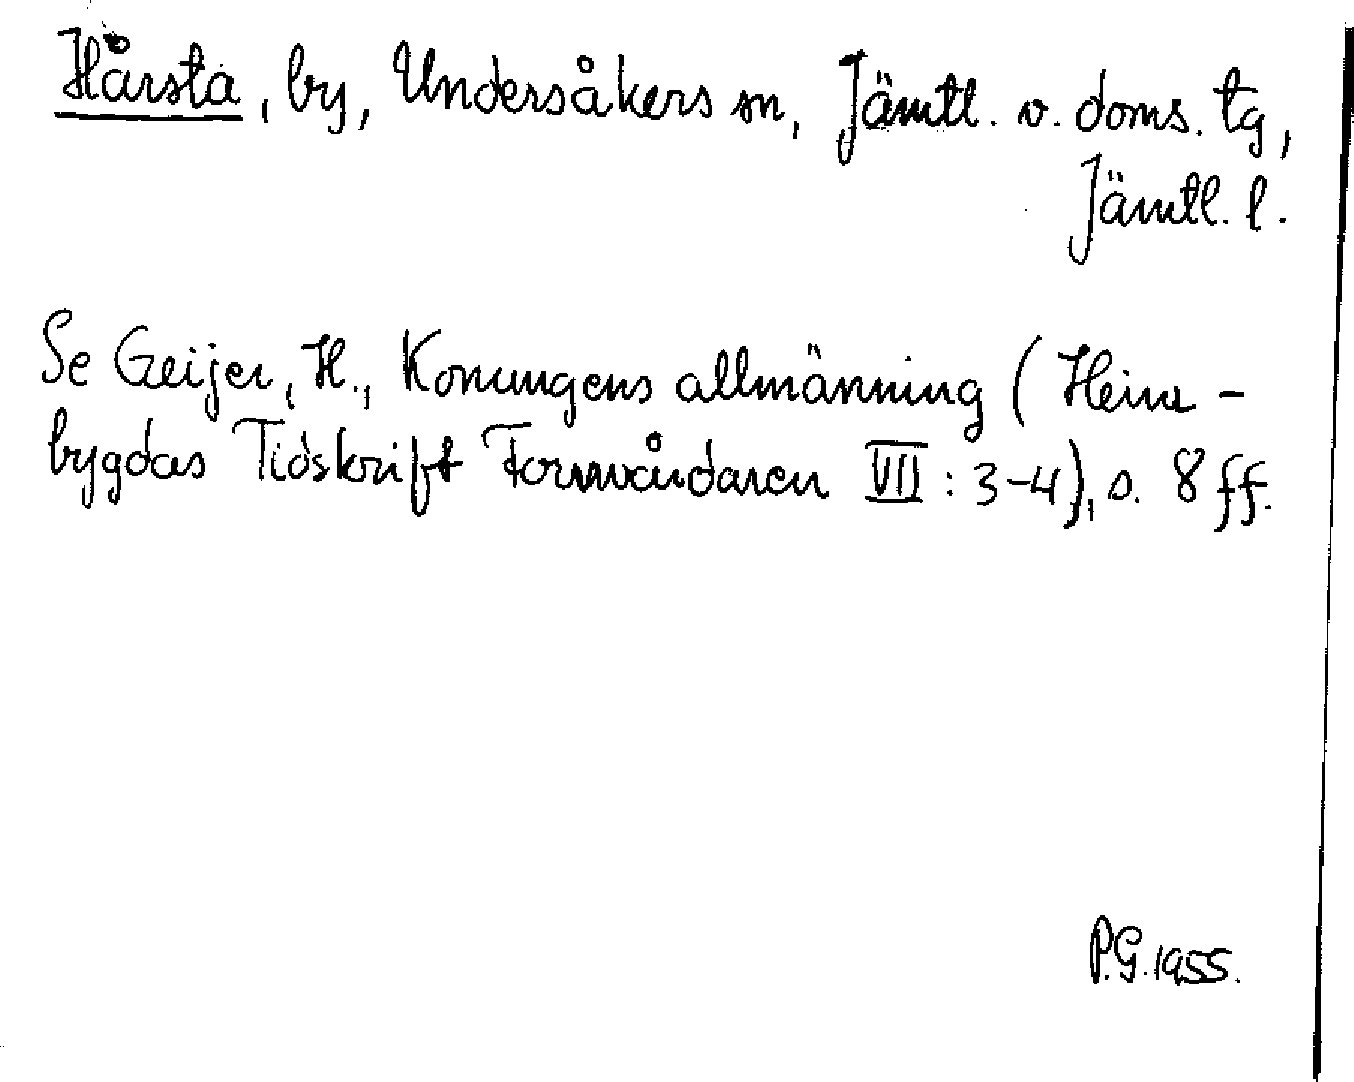 Hårsta, by, Undersåkers sn, Jämtl. v. doms. tg,
Jämtl. l.
Se Geijer, H., Konungens allmänning (Heim-
bygdas Tidskrift Fornvårdaren VII: 3-4), s. 8 ff.
P.G. 1955.